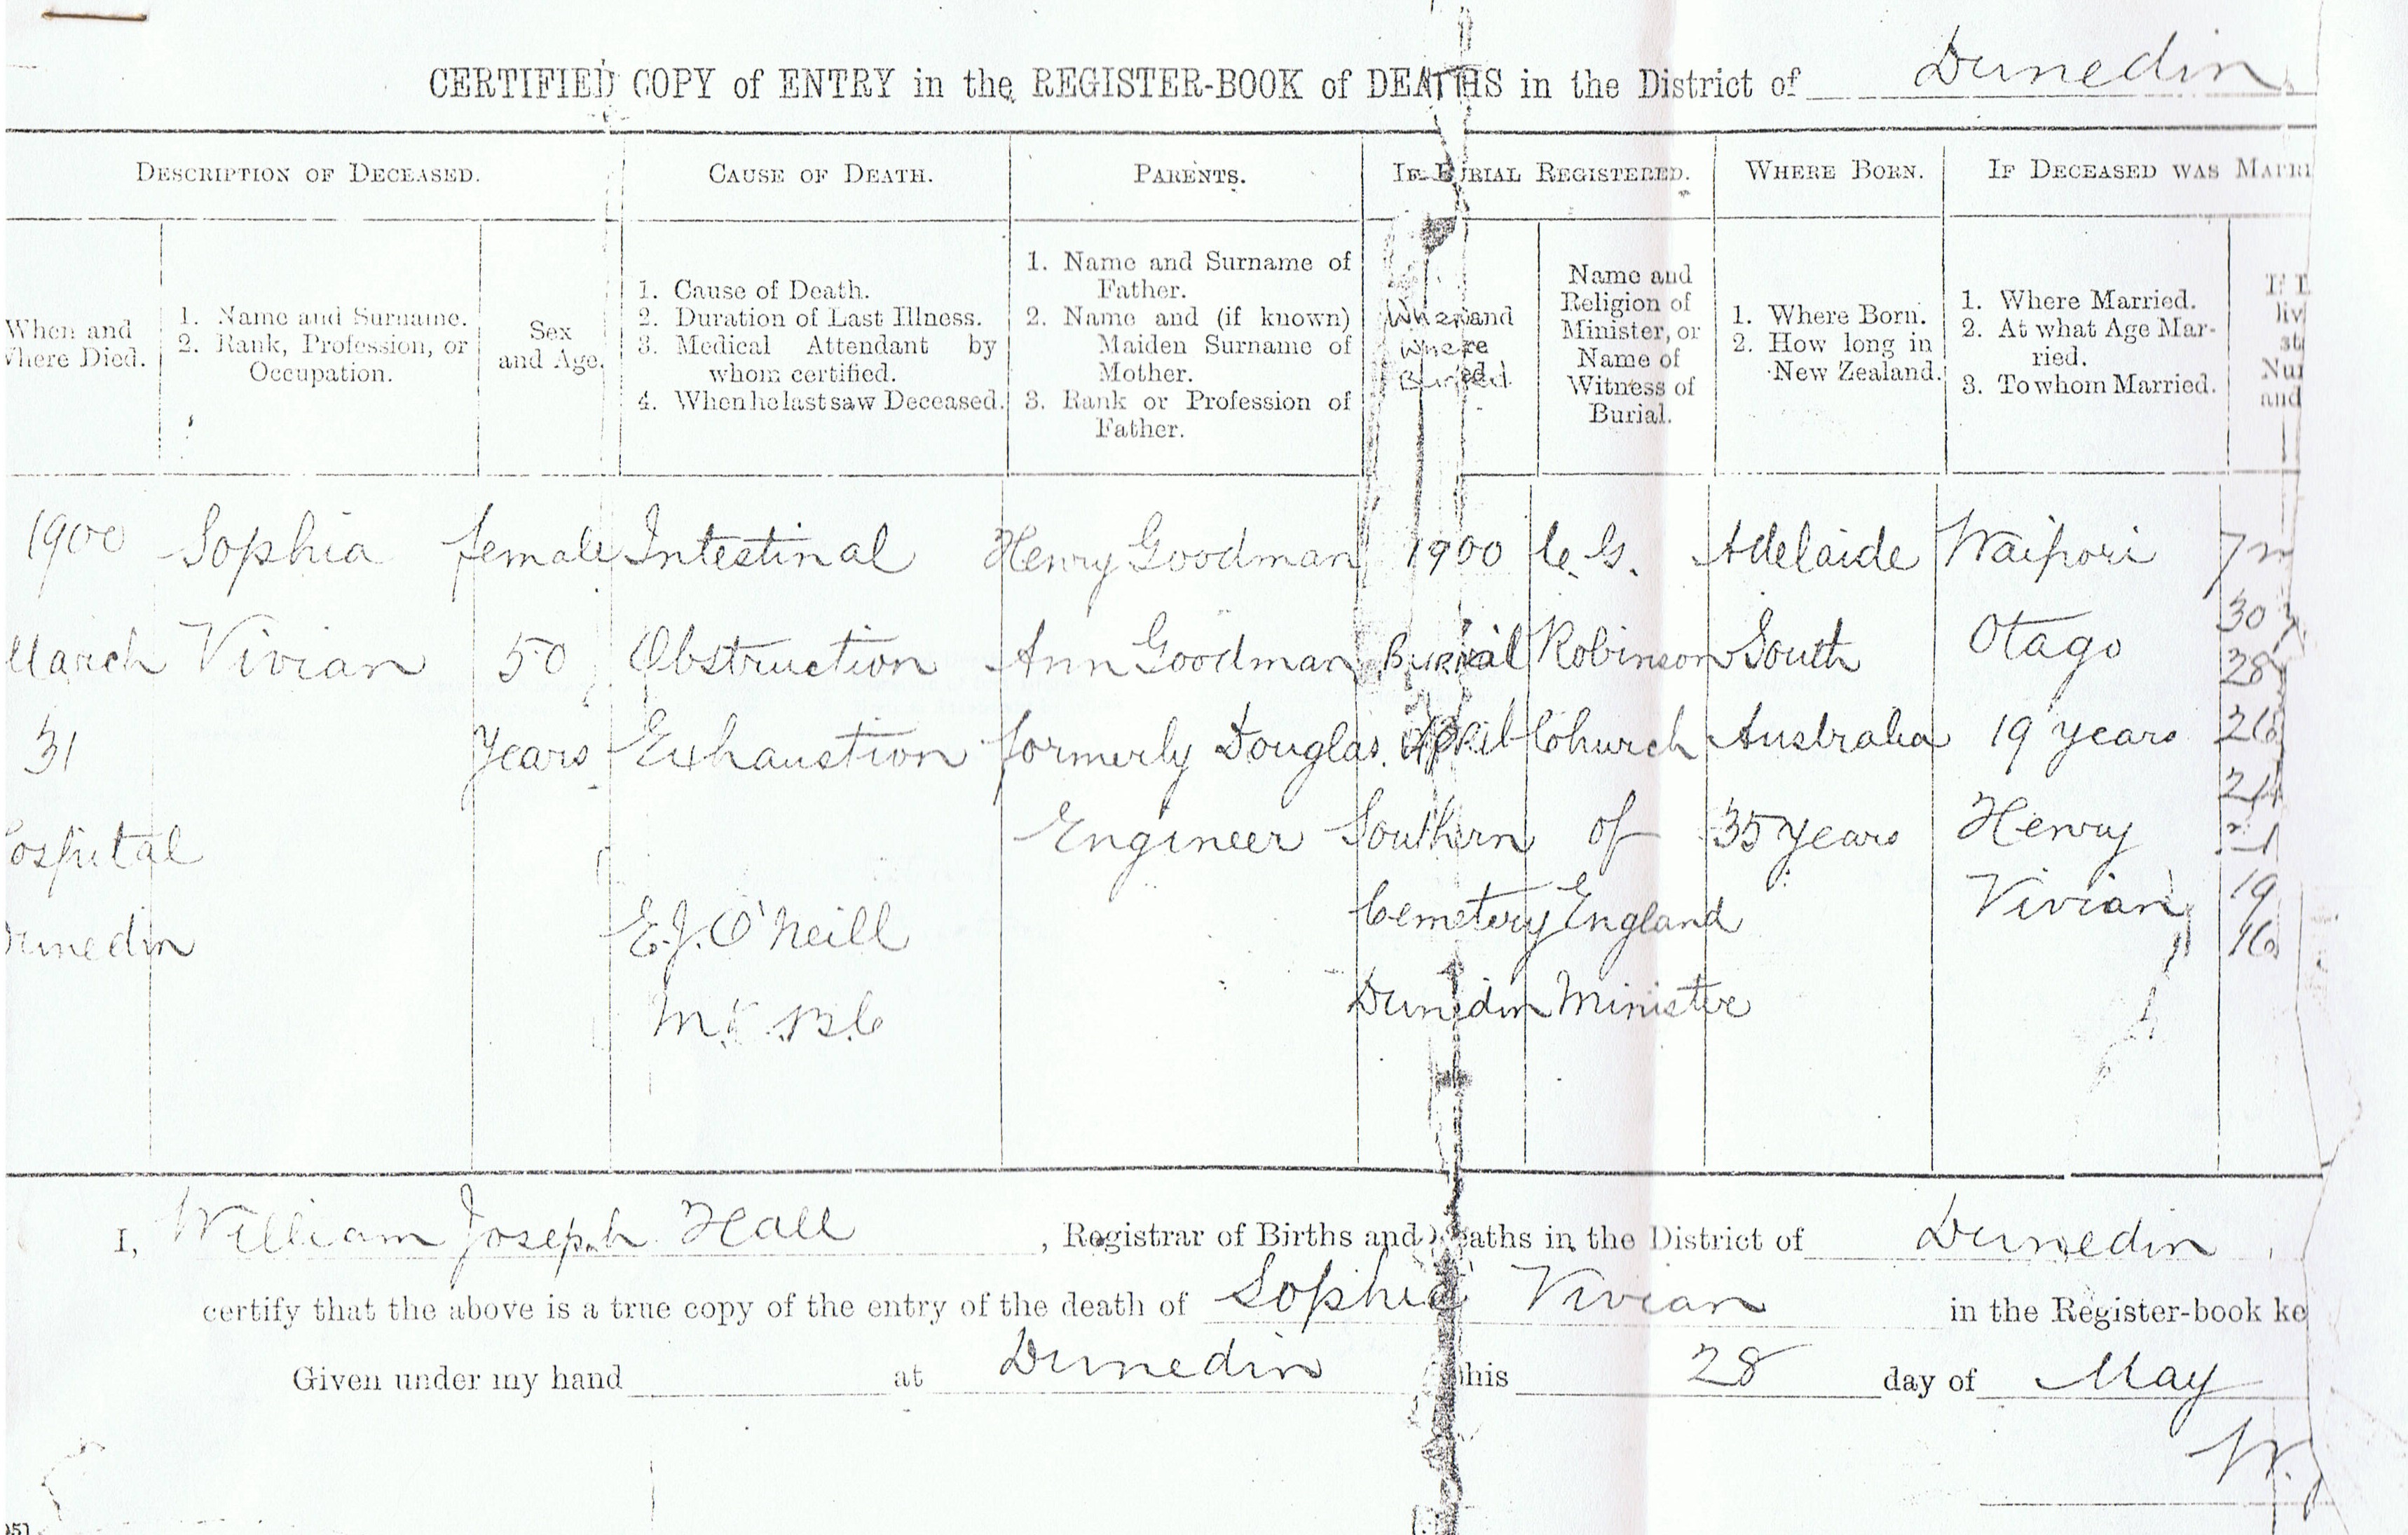 CERTIFIED COPY of ENTRY in the REGISTER-BOOK of DEATHS in the District of Dunedin
DESCRIPTION OF DECEASED.
CAUSE OF DEATH.
PARENTS.
IF BURIAL REGISTERED.
WHERE BORN.
IF DECEASED WAS MARRI
When and
Where Died.
1. Name and Surname.
2. Rank, Profession, or
Occupation.
Sex
and Age.
1. Cause of Death.
2. Duration of Last Illness.
3. Medical Attendant by
whom certified.
4. When he last saw Deceased.
1. Name and Surname of
Father.
2. Name and (if known)
Maiden Surname of
Mother.
3. Rank or Profession of
Father.
When and
Where
Buried.
Name and
Religion of
Minister, or
Name of
Witness of
Burial.
1. Where Born.
2. How long in
New Zealand.
1. Where Married.
2. At what Age Mar-
ried.
3. To whom Married.
liv
st
Nu
and
1900
March
31
Hospital
Dunedin
Sophia
Vivian
female
50
Years
Intestinal
Obstruction
Exhaustion
E.J. O'Neill
Henry Goodman
Ann Goodman
formerly Douglas.
Engineer
1900
Burial
April
Southern
Cemetery
Dunedin
C. G.
Robinson
Church
of
England
Minister
Adelaide
South
Australia
35 years
Waipori
Otago
19 years
Henry
Vivian
7
30
28
26
24
21
19
16
I, William Joseph Hall, Registrar of Births and Deaths in the District of Dunedin,
certify that the above is a true copy of the entry of the death of Sophia Vivian in the Register-book ke
Given under my hand at Dunedin this 28 day of May
W.
95]